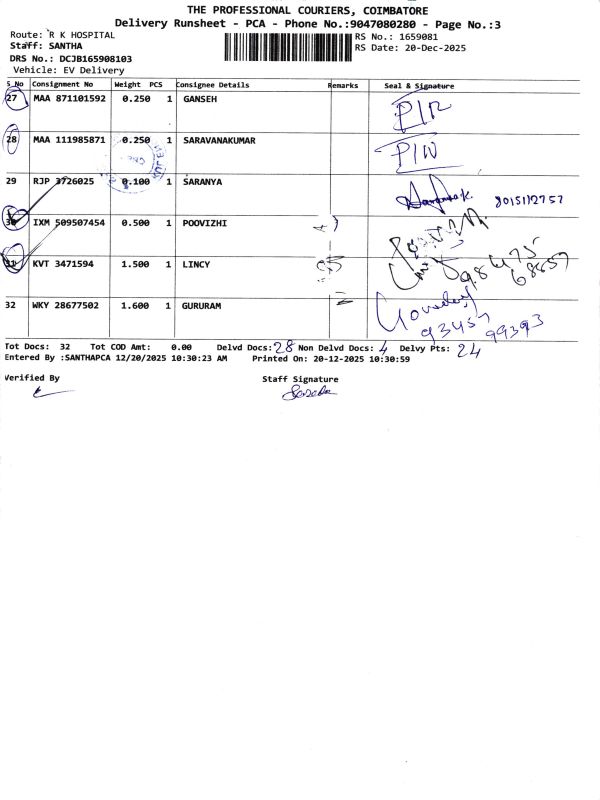 THE PROFESSIONAL COURIERS, COIMBATORE
Delivery Runsheet - PCA - Phone No.:9047080280 - Page No.:3
Route: R K HOSPITAL
RS No.: 1659081
Staff: SANTHA
RS Date: 20-Dec-2025
DRS No.: DCJB165908103
Vehicle: EV Delivery
S No Consignment No Weight PCS Consignee Details Remarks Seal & Signature
27 MAA 871101592 0.250 1 GANSEH
28 MAA 111985871 0.250 1 SARAVANAKUMAR
29 RJP 3726025 0.100 1 SARANYA 8015112757
30 IXM 509507454 0.500 1 POOVIZHI
31 KVT 3471594 1.500 1 LINCY 98475
68657
32 WKY 28677502 1.600 1 GURURAM
93457 99393
Tot Docs: 32 Tot COD Amt: 0.00 Delvd Docs: 28 Non Delvd Docs: 4 Delvy Pts: 24
Entered By :SANTHAPCA 12/20/2025 10:30:23 AM Printed On: 20-12-2025 10:30:59
Verified By Staff Signature